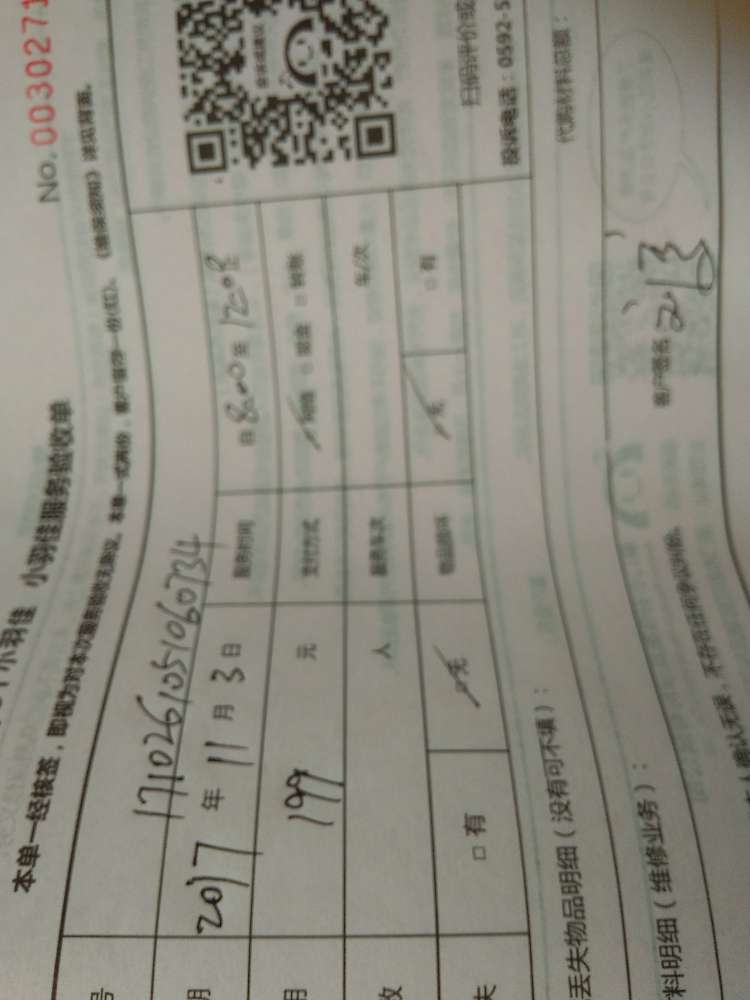 小羽佳 小羽佳服务验收单
No. 0030271
本单一经核签，即视为对本次服务验收无异议。本单一式两份，客户留存一份(红)。《维保须知》详见背面。
号 1710261051060734
期 2017 年 11 月 3 日 服务时间 日 8:00 至 12:08
用 199 元 支付方式 现金 转账
数 人 服务车次 车/次
失 □ 有 无 物品损坏 无 □ 有
扫码评价或
投诉电话：0592-5
丢失物品明细（没有可不填）：
料明细（维修业务）：
代购材料总额：
客户签名
确认无误，不存在任何争议纠纷。